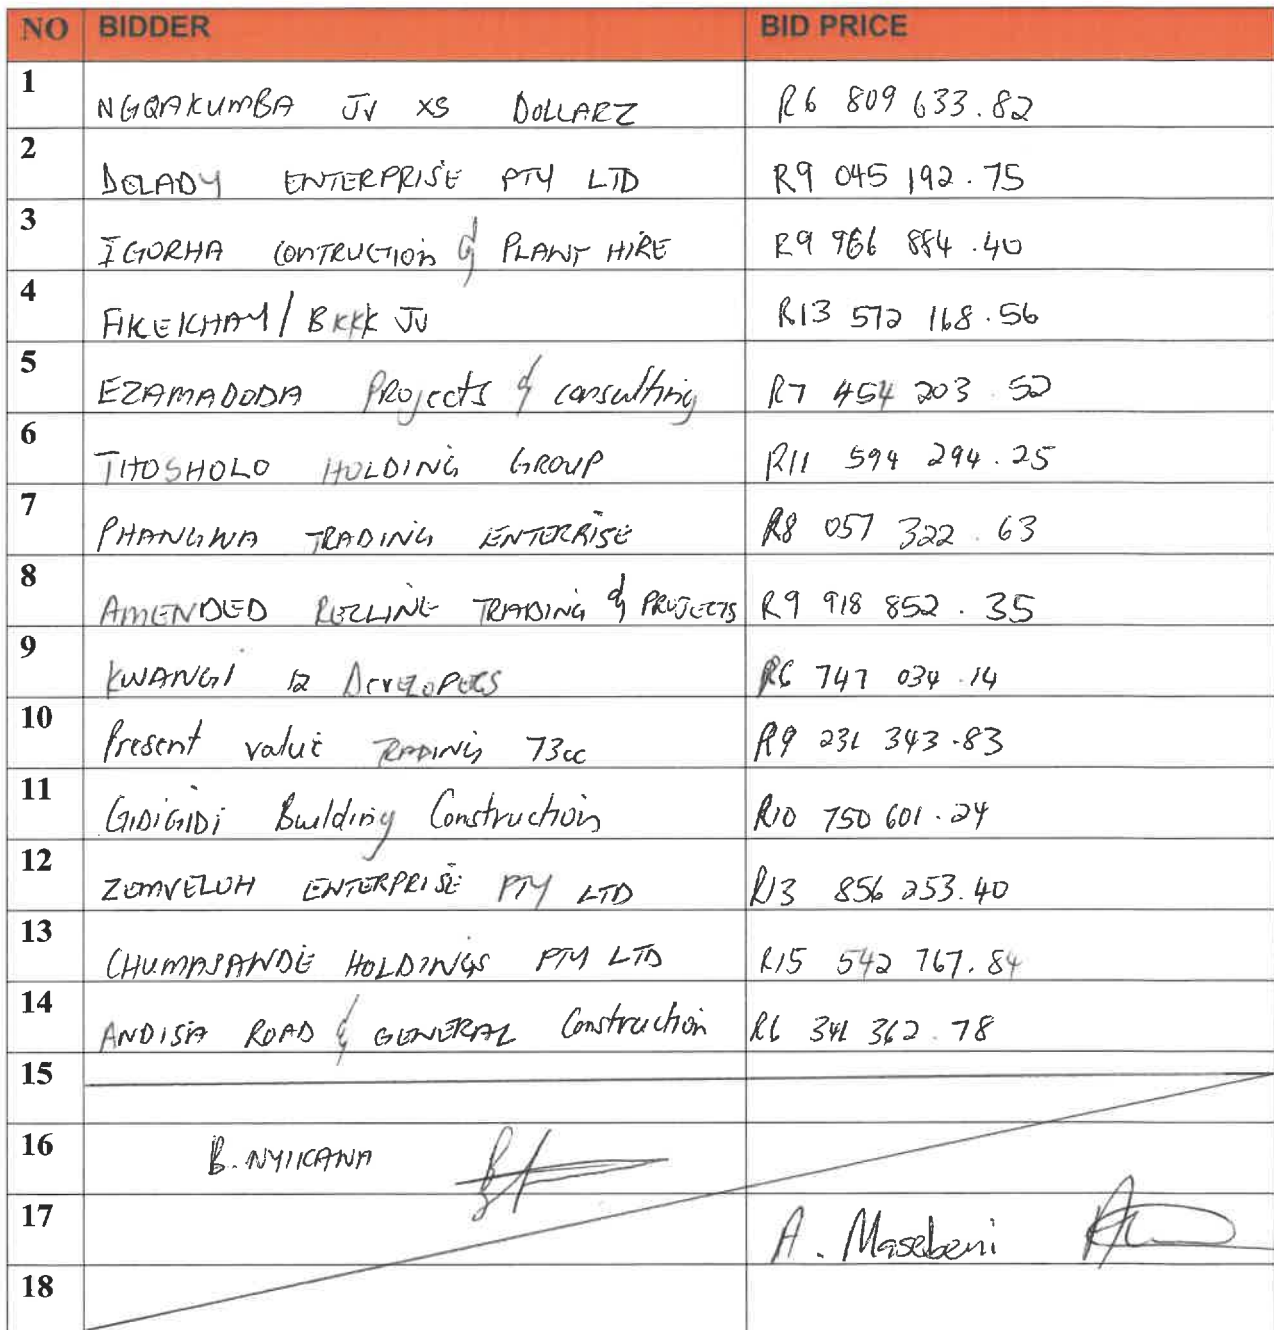 NO BIDDER BID PRICE
1 NGQAKUMBA JV XS DOLLARZ R6 809 633.82
2 DELADY ENTERPRISE PTY LTD R9 045 192.75
3 IGORHA CONTRUCTION & PLANT HIRE R9 966 884.40
4 FIKEKHAY/ BKKK JV R13 572 168.56
5 EZAMADODA PROJECTS & consulting R7 454 203.52
6 TITOSHOLO HOLDING GROUP R11 594 294.25
7 PHANGWA TRADING ENTERRISE R8 057 322.63
8 AMENDED REZLINE TRADING & PROJECTS R9 918 852.35
9 KWANGI 12 DEVELOPERS R6 747 034.14
10 Present value TRADING 73cc R9 231 343.83
11 GIDIGIDI Building Construction R10 750 601.24
12 ZEMVELOH ENTERPRISE PTY LTD R13 856 253.40
13 CHUMASANDE HOLDINGS PTY LTD R15 542 767.84
14 ANDISA ROAD & GENERAL Construction R6 341 362.78
15
16 B. NYIKANA
17 A. Masebeni
18